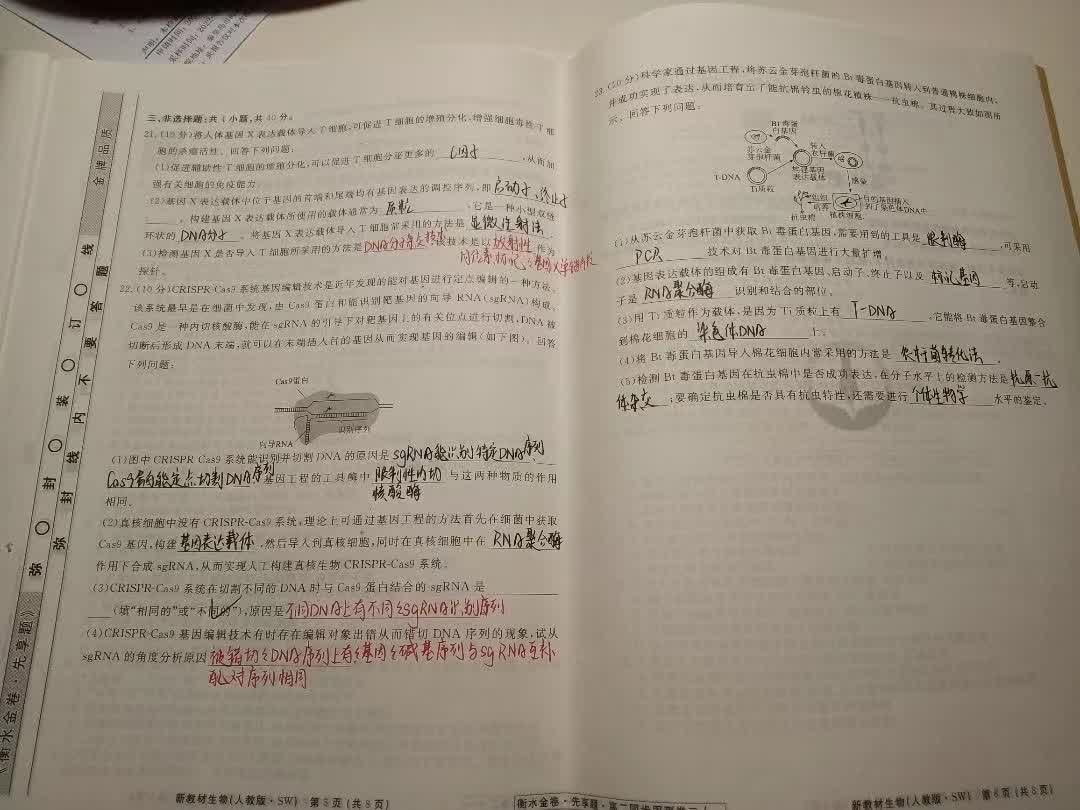 三、非选择题:共4小题,共40分。
21.(10分)将人体基因X表达载体导入T细胞,可促进T细胞的增殖分化,增强细胞毒性T细
胞的杀瘤活性。回答下列问题:
(1)促进辅助性T细胞的增殖分化,可以促进T细胞分泌更多的 细胞因子 ,从而加
强有关细胞的免疫能力。
(2)基因X表达载体中位于基因的首端和尾端均有基因表达的调控序列,即 启动子、终止子
。构建基因X表达载体所使用的载体通常为 质粒 ,它是一种小型双链
环状的 DNA分子 。将基因X表达载体导入T细胞常采用的方法是 显微注射法 。
(3)检测基因X是否导入T细胞所采用的方法是 DNA分子杂交技术 ,该技术是以 放射性
同位素标记的基因X单链片段 作为
探针。
22.(10分)CRISPR-Cas9系统基因编辑技术是近年发现的能对基因进行定点编辑的一种方法。
该系统最早是在细菌中发现,由Cas9蛋白和能识别靶基因的向导RNA(sgRNA)构成。
Cas9是一种内切核酸酶,能在sgRNA的引导下对靶基因上的有关位点进行切割,DNA被
切断后形成DNA末端,就可以在末端插入目的基因从而实现基因的编辑(如下图)。回答
下列问题:
Cas9蛋白
识别序列
向导RNA
(1)图中CRISPR-Cas9系统能识别并切割DNA的原因是 sgRNA能识别特定DNA序列、
Cas9蛋白能定点切割DNA序列 基因工程的工具酶中 限制性内切核酸酶 与这两种物质的作用
相同。
(2)真核细胞中没有CRISPR-Cas9系统,理论上可通过基因工程的方法首先在细菌中获取
Cas9基因,构建 基因表达载体 ,然后导入到真核细胞,同时在真核细胞中在 RNA聚合酶
作用下合成sgRNA,从而实现人工构建真核生物CRISPR-Cas9系统。
(3)CRISPR-Cas9系统在切割不同的DNA时与Cas9蛋白结合的sgRNA是
(填“相同的”或“不同的”),原因是 不同DNA上有不同的sgRNA识别序列
(4)CRISPR-Cas9基因编辑技术有时存在编辑对象出错从而错切DNA序列的现象,试从
sgRNA的角度分析原因 被错切的DNA序列上有的基因的碱基序列与sgRNA互补
配对序列相同
新教材生物(人教版·SW) 第5页(共8页)
《衡水金卷·先享题》
金牌品质
弥 封 装 订 线
弥 封 线 内 不 要 答 题
23.(10分)科学家通过基因工程,将苏云金芽孢杆菌的Bt毒蛋白基因转入到普通棉株细胞内,
并成功实现了表达,从而培育出了能抗棉铃虫的棉花植株——抗虫棉。其过程大致如图所
示。回答下列问题:
Bt毒蛋白基因
苏云金芽孢杆菌
导入农杆菌
T-DNA
Ti质粒
构建基因表达载体
感染
组织培养
抗虫棉
植株细胞
目的基因插入到了染色体DNA中
(1)从苏云金芽孢杆菌中获取Bt毒蛋白基因,需要用到的工具是 限制酶 ,可采用
PCR 技术对Bt毒蛋白基因进行大量扩增。
(2)基因表达载体的组成有Bt毒蛋白基因、启动子、终止子以及 标记基因 等,启动
子是 RNA聚合酶 识别和结合的部位。
(3)用Ti质粒作为载体,是因为Ti质粒上有 T-DNA ,它能将Bt毒蛋白基因整合
到棉花细胞的 染色体DNA 上。
(4)将Bt毒蛋白基因导入棉花细胞内常采用的方法是 农杆菌转化法 。
(5)检测Bt毒蛋白基因在抗虫棉中是否成功表达,在分子水平上的检测方法是 抗原-抗
体杂交 ;要确定抗虫棉是否具有抗虫特性,还需要进行 个体生物学 水平的鉴定。
新教材生物(人教版·SW) 第6页(共8页)